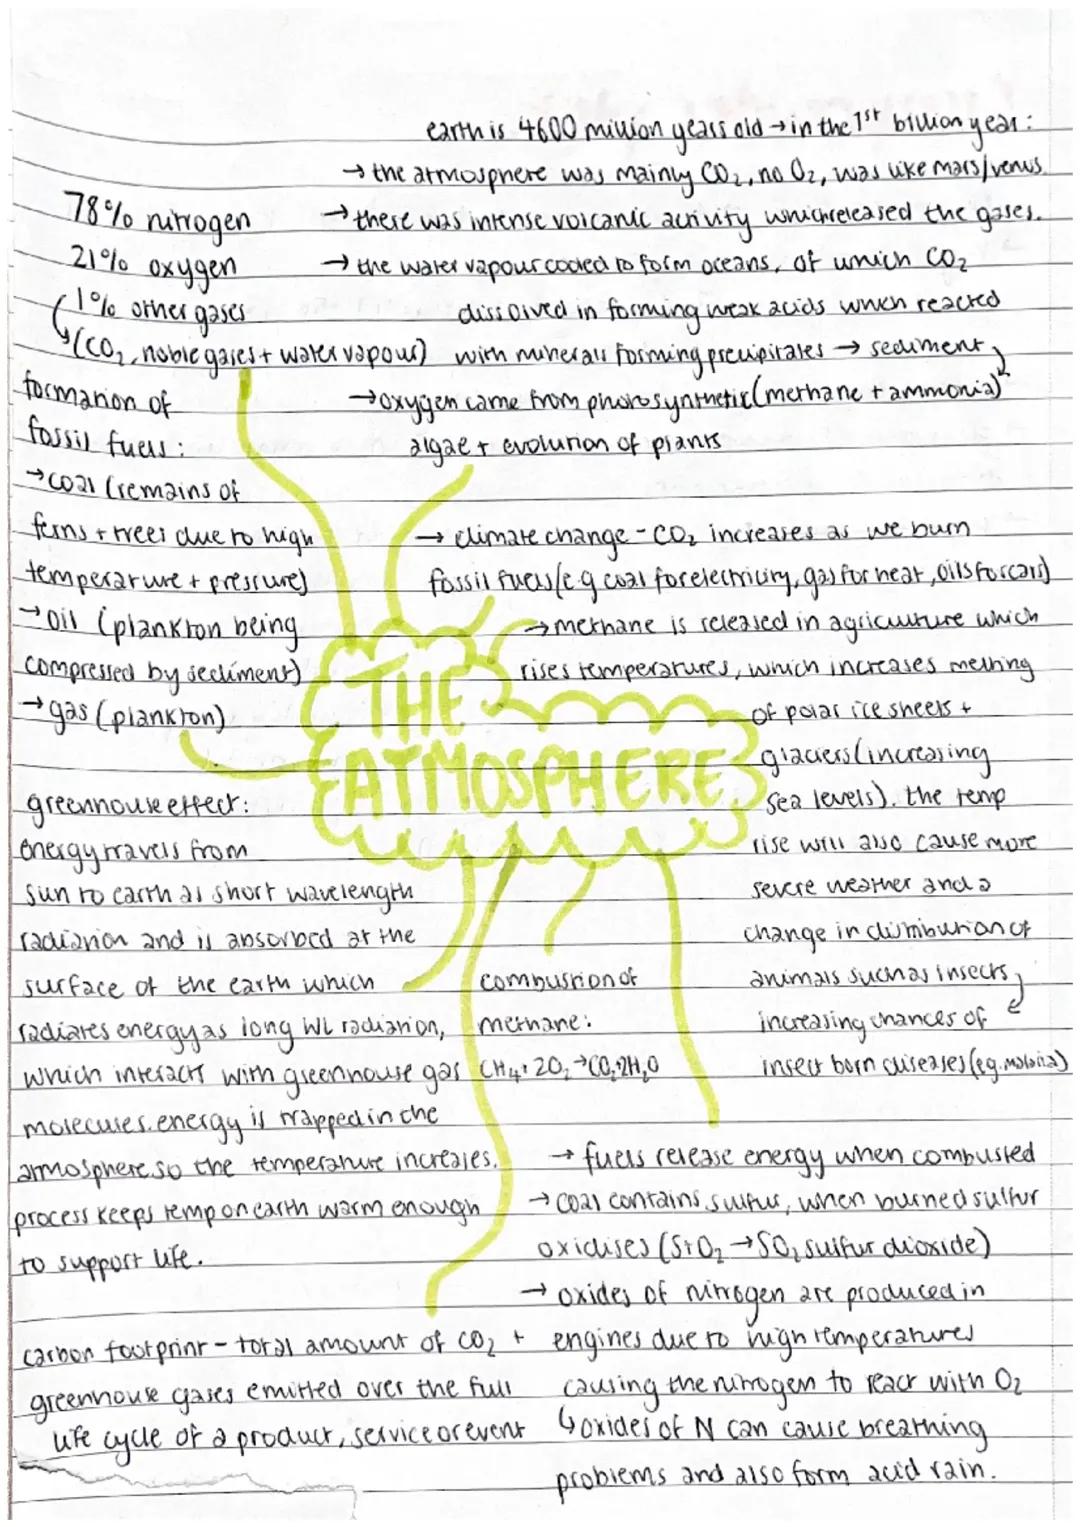 earth is 4600 million years old → in the 1st billion year:
→ the atmosphere was mainly CO₂, no O₂, was like mars/venus
→ there was intense volcanic activity which released the gases.
→ the water vapour cooled to form oceans, of which CO₂
dissolved in forming weak acids which reacted
with minerals forming precipitates → sediment
→ oxygen came from photosynthetic (methane + ammonia)
algae + evolution of plants
78% nitrogen
21% oxygen
1% other gases
(CO₂, noble gases + water vapour)
formation of
fossil fuels:
→ coal (remains of
ferns + trees due to high
temperature + pressure)
→ oil (plankton being
compressed by sediment)
→ gas (plankton)
→ climate change - CO₂ increases as we burn
fossil fuels (e.g coal for electricity, gas for heat, oils for cars)
→ methane is released in agriculture which
rises temperatures, which increases melting
of polar ice sheets +
glaciers (increasing
sea levels). the temp
rise will also cause more
severe weather and a
change in distribution of
animals such as insects,
increasing chances of
insect born diseases (eg. malaria)
THE
ATMOSPHERE
greenhouse effect:
energy travels from
sun to earth as short wavelength
radiation and is absorbed at the
surface of the earth which
radiates energy as long WL radiation,
which interacts with greenhouse gas
molecules. energy is trapped in the
atmosphere so the temperature increases.
process keeps temp on earth warm enough
to support life.
combustion of
methane:
CH₄ + 2O₂ → CO₂ + 2H₂O
→ fuels release energy when combusted
→ coal contains sulfur, when burned sulfur
oxidises (S+O₂ → SO₂ sulfur dioxide)
→ oxides of nitrogen are produced in
engines due to high temperatures
causing the nitrogen to react with O₂
↳ oxides of N can cause breathing
problems and also form acid rain.
carbon footprint - total amount of CO₂ +
greenhouse gases emitted over the full
life cycle of a product, service or event